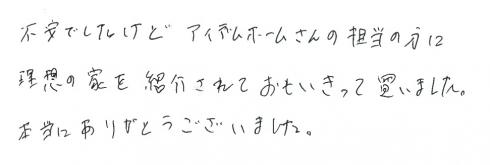 不安でしたけど アイデムホームさんの担当の方に
理想の家を 紹介されて おもいきって 買いました。
本当にありがとうございました。